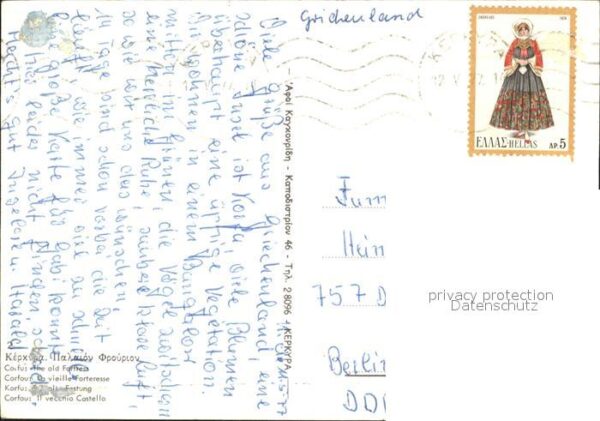 Grichenland
Viele Grüße aus Griechenland, eine
schöne Insel ist Korfu, viele Blumen
überhaupt eine üppige Vegetation.
Wir wohnen in einem Bungalow
mitten im Grünen, die Vögel zwitschern
eine herrliche Ruhe, saubere klare Luft,
so wie wir uns das wünschen.
14 Tage sind schon vorbei die Zeit
läuft wie immer viel zu schnell.
Eine große Karte für Gabi konnte
hier leider nicht finden
Macht's gut Ingelore u. Harald
11.5.77
Κέρκυρα. Παλαιόν Φρούριον
Corfu: The old Fortress
Corfou: La vieille Forteresse
Korfu: Die alte Festung
Corfou: Il vecchio Castello
Ἀφοί Καγκουρίδη - Καποδιστρίου 46 - Τηλ. 28096 - ΚΕΡΚΥΡΑ
ΕΛΛΑΣ-HELLAS ΔΡ. 5
Fam
Hein
757 D
Berlin
DD
privacy protection
Datenschutz